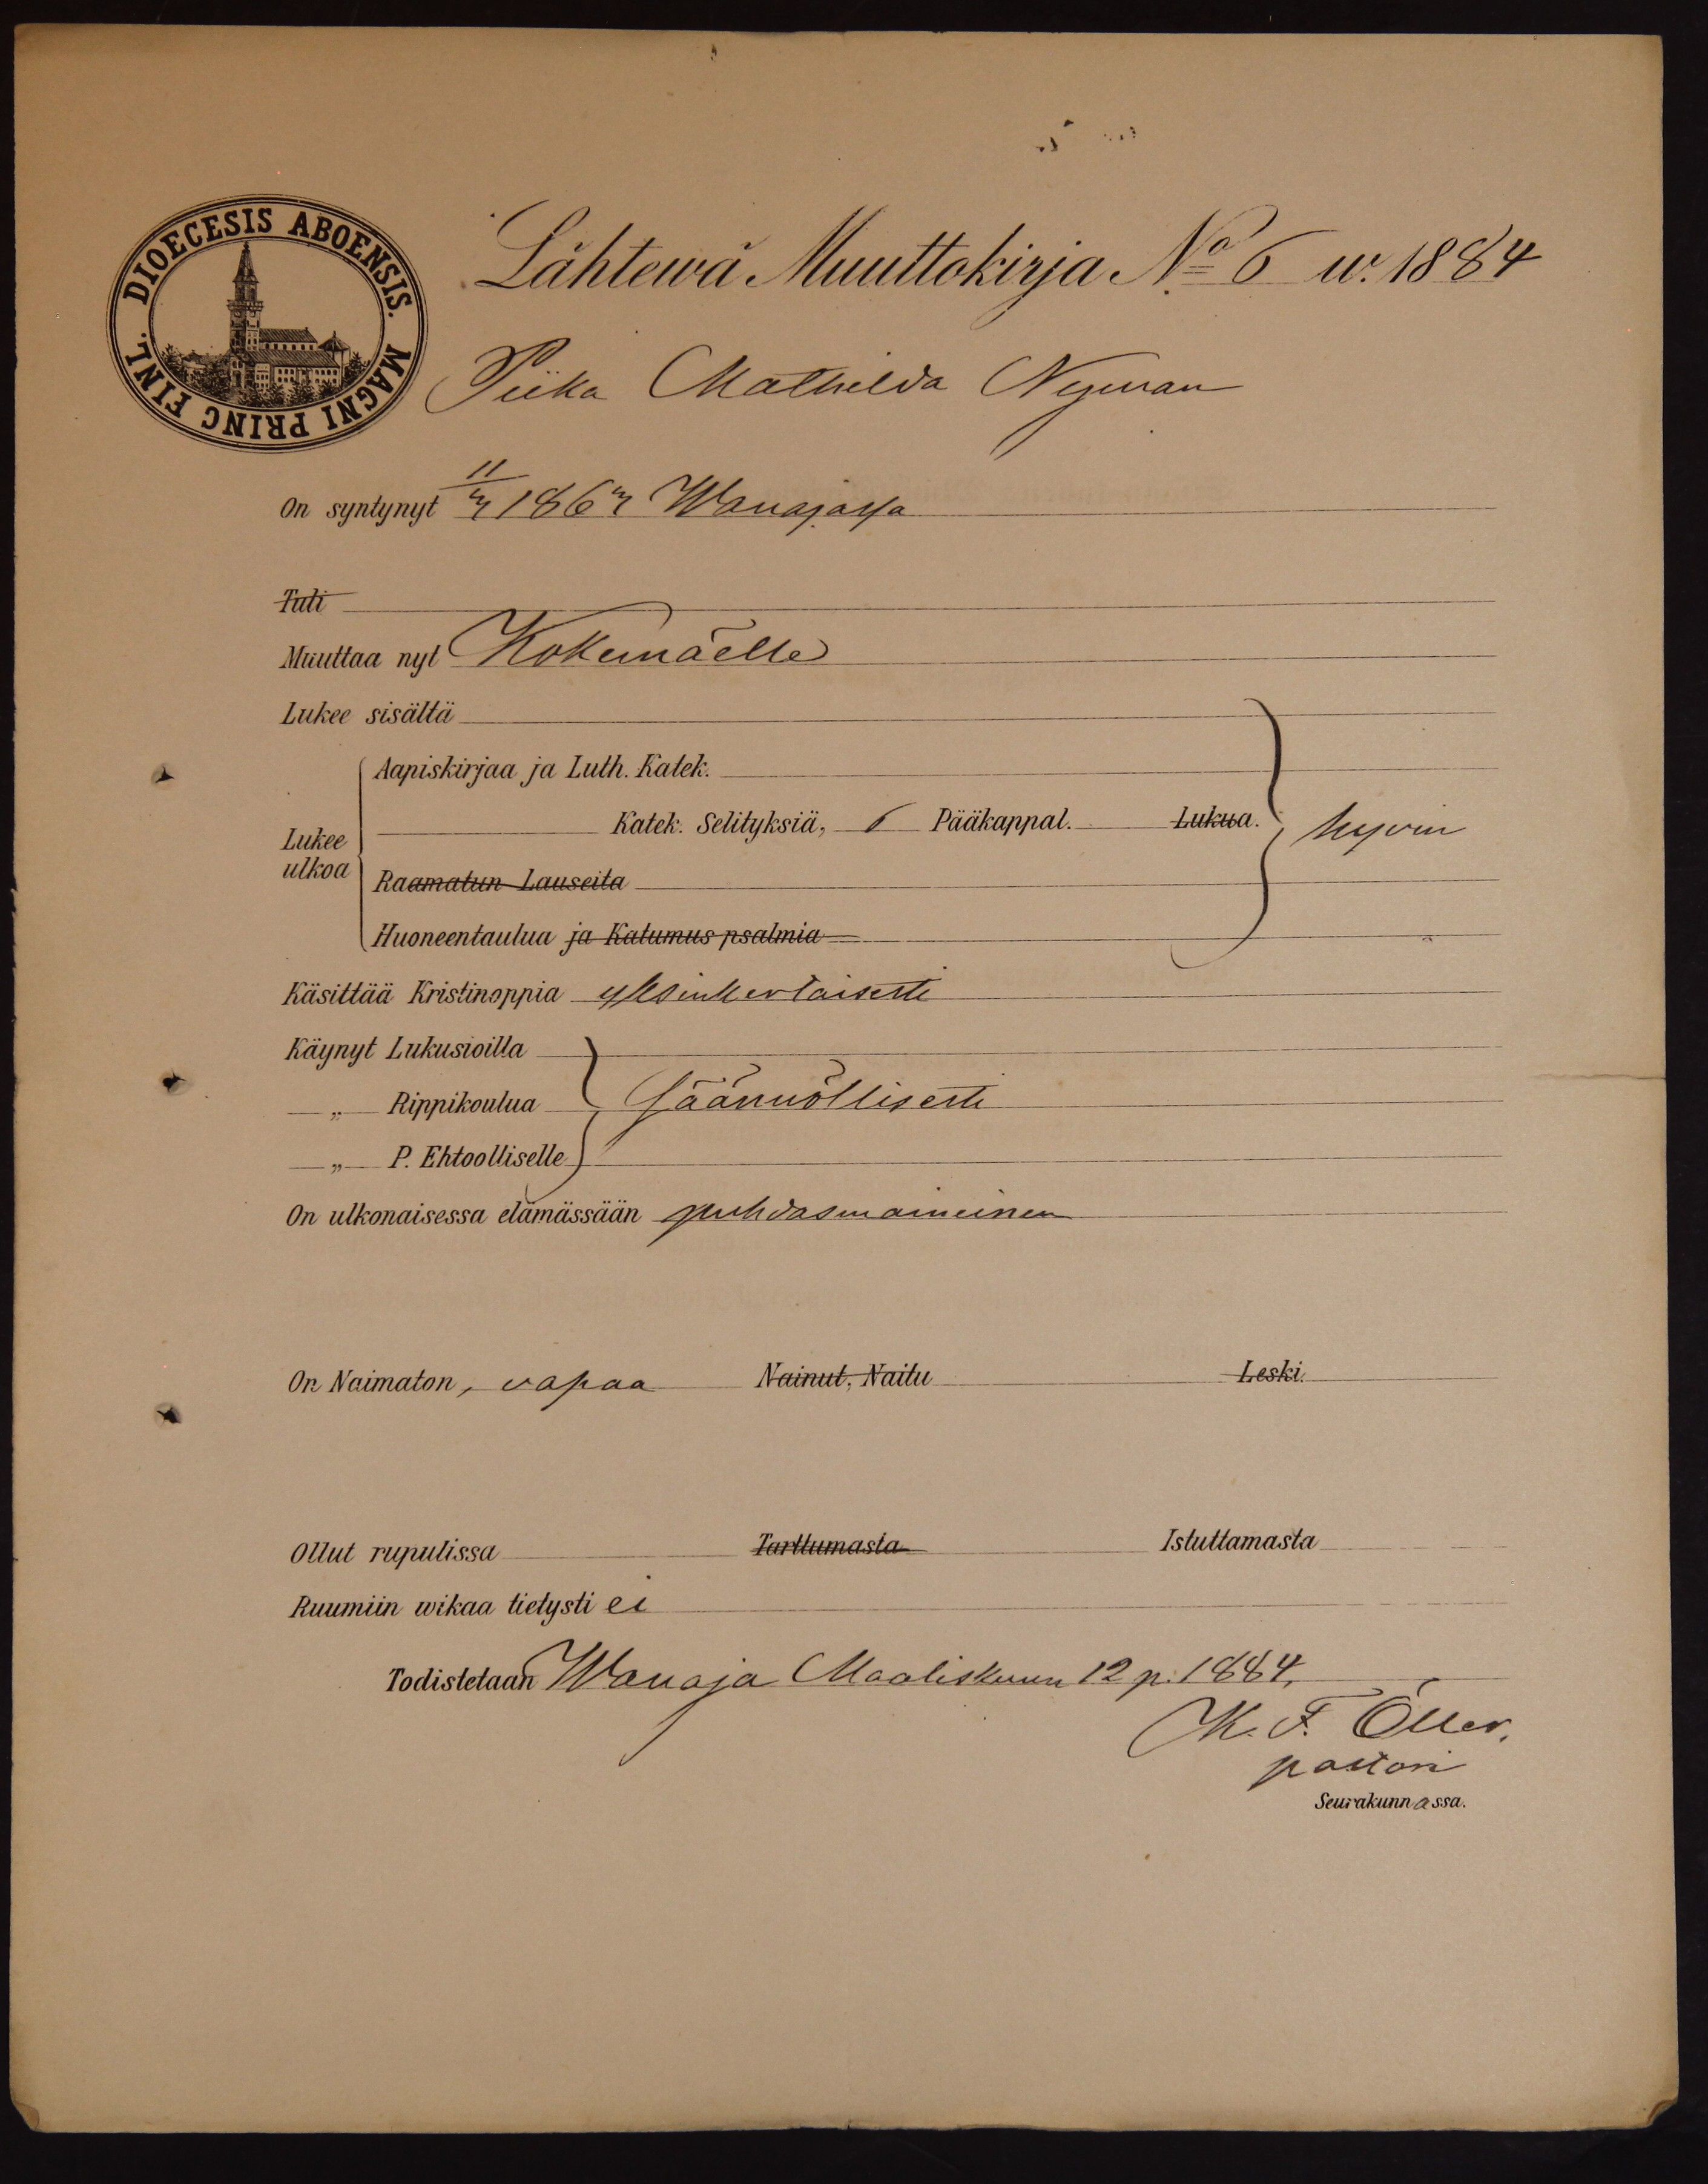 DIOECESIS ABOENSIS. MAGNI PRINC FINL.
Lähtewä Muuttokirja No 6 w. 1884
Piika Mathilda Nyman
On syntynyt 11/3 1863 Wanajassa
Tuli
Muuttaa nyt Kokemäelle
Lukee sisältä
Aapiskirjaa ja Luth. Katek.
Katek. Selityksiä, 6 Pääkappal. Lukua.
Lukee ulkoa
hyvin
Raamatun Lauseita
Huoneentaulua ja Katumus psalmia
Käsittää Kristinoppia yksinkertaisesti
Käynyt Lukusioilla
„ Rippikoulua säännöllisesti
„ P. Ehtoolliselle
On ulkonaisessa elämässään puhdasmaineinen
On Naimaton, vapaa Nainut, Naitu Leski.
Ollut rupulissa Tarttumasta Istuttamasta
Ruumiin wikaa tietysti ei
Todistetaan Wanaja Maaliskuun 12 p. 1884,
K. F. Öller.
pastori
Seurakunnassa.